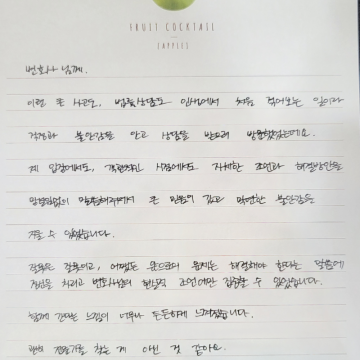 FRUIT COCKTAIL
(APPLE)
변호사 님께.
이런 큰 사고도, 법률상담도 인생에서 처음 겪어보는 일이라
걱정과 불안감을 안고 상담을 받으러 방문했었는데요.
제 입장에서도, 객관적인 시점에서도 자세한 조언과 해결방안을
말씀해주셔서 큰 믿음이 갔고 막연한 불안감을
있었습니다.
잘못은 잘못이고, 어쨌든 앞으로의 문제는 해결해야 한다는 말씀에
정신을 차리고 변호사님의 현실적 조언에만 집중할 수 있었습니다.
함께 간다는 느낌이 너무나 든든하게 느껴졌습니다.
찾는 게 아닌 것 같아요.